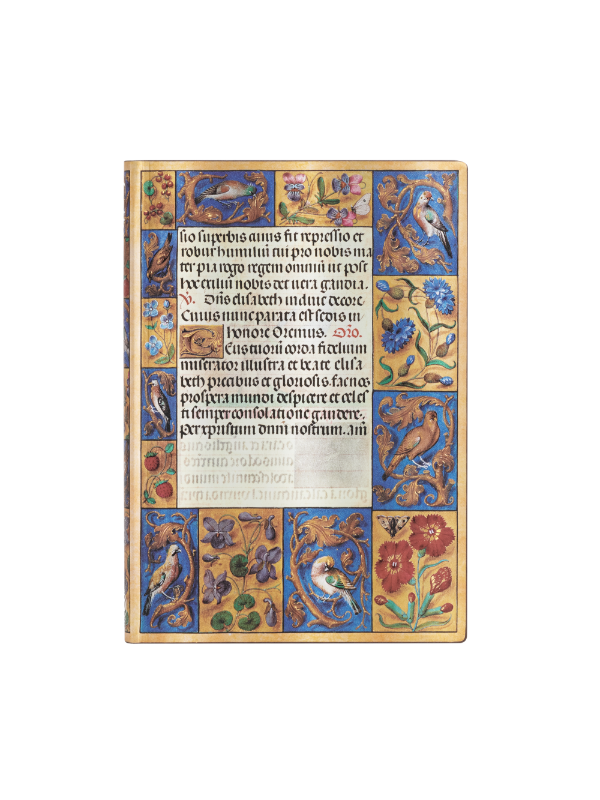 sio superbis auus fit repressio et
robur humiliū tui pro nobis ma
ter pia rogo regem omniū ut post
hoc exiliū nobis det uera gaudia.
V. Dn̄s elisabeth induit decore.
Cuius nunc parata est sedis in
honore Oremus. Oro.
corda fidelium
miserator illustra et beate elisa
beth precibus et gloriosis. fac nos
prospera mundi despicere et celes
ti semper consolatione gaudere.
per xpristum dnm̄ nostrum. am̄